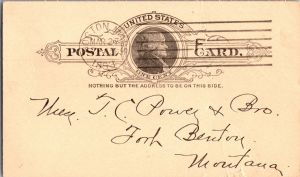 UNITED STATES
POSTAL CARD.
ONE CENT
NOTHING BUT THE ADDRESS TO BE ON THIS SIDE.
Mess. T. C. Power & Bro.
Fort Benton,
Montana.